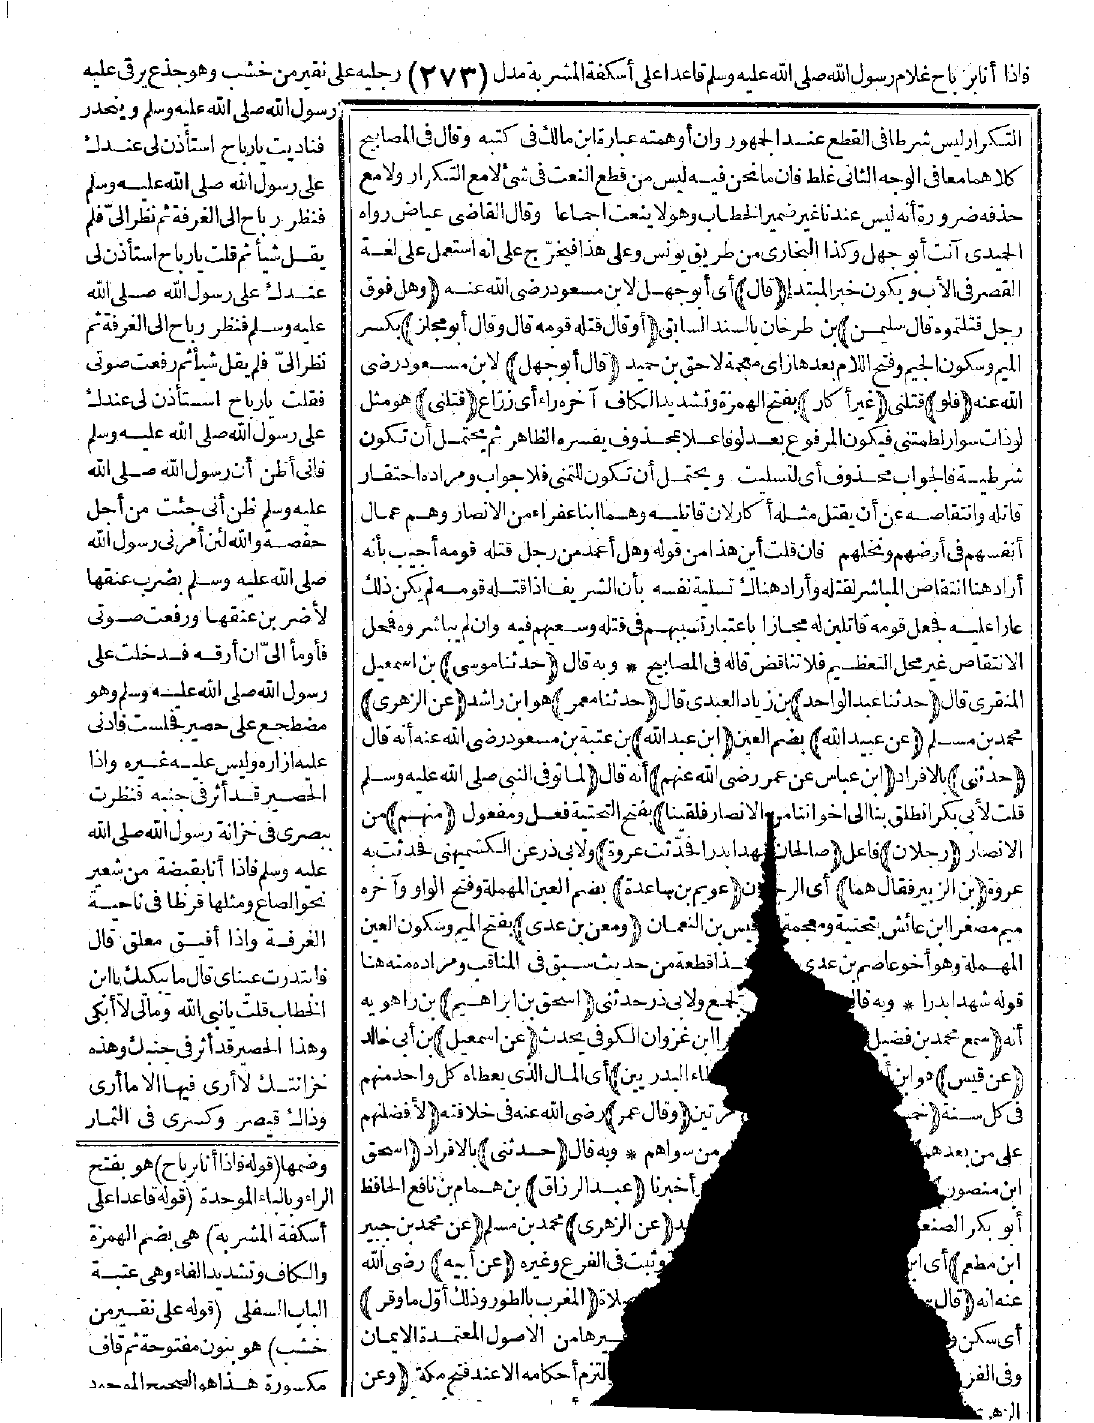 فاذا أنا برباح غلام رسول الله صلى الله عليه وسلم قاعدا على أسكفة المشربة مدل (٢٧٣) رجليه على نقير من خشب وهو جذع يرقى عليه
رسول الله صلى الله عليه وسلم وينحدر
فناديت يا رباح استأذن لى عندك
على رسول الله صلى الله عليه وسلم
فنظر رباح الى الغرفة ثم نظر الىّ فلم
يقل شيأ ثم قلت يا رباح استأذن لى
عندك على رسول الله صلى الله
عليه وسلم فنظر رباح الى الغرفة ثم
نظر الىّ فلم يقل شيأ ثم رفعت صوتى
فقلت يا رباح استأذن لى عندك
على رسول الله صلى الله عليه وسلم
فانى أظن أن رسول الله صلى الله
عليه وسلم ظن أنى جئت من أجل
حفصة والله لئن أمرنى رسول الله
صلى الله عليه وسلم بضرب عنقها
لأضربن عنقها ورفعت صوتى
فأومأ الىّ ان أرقه فدخلت على
رسول الله صلى الله عليه وسلم وهو
مضطجع على حصير فجلست فادنى
عليه ازاره وليس عليه غيره واذا
الحصير قد أثر فى جنبه فنظرت
ببصرى فى خزانة رسول الله صلى الله
عليه وسلم فاذا أنا بقبضة من شعير
نحو الصاع ومثلها قرظا فى ناحية
الغرفة واذا أفيق معلق قال
فابتدرت عيناى قال ما يبكيك يا ابن
الخطاب قلت يا نبى الله ومالى لا أبكى
وهذا الحصير قد أثر فى جنبك وهذه
خزانتك لا أرى فيها الا ما أرى
وذاك قيصر وكسرى فى الثمار
وضمها (قوله فاذا أنا برباح) هو بفتح
الراء وبالباء الموحدة (قوله قاعدا على
أسكفة المشربة) هى بضم الهمزة
والكاف وتشديد الفاء وهى عتبة
الباب السفلى (قوله على نقير من
خشب) هو بنون مفتوحة ثم قاف
مكسورة هذا هو الصحيح الموجود
التكرار ليس شرطا فى القطع عند الجمهور وان أوهمته عبارة ابن مالك فى كتبه وقال فى المصابيح
كلاهما معا فى الوجه الثانى غلط فان ما نحن فيه ليس من قطع النعت فى شئ لا مع التكرار ولا مع
حذفه ضرورة أنه ليس عندنا غير ضمير الخطاب وهو لا ينعت اجماعا وقال القاضى عياض رواه
الحميدى آنت أبو جهل وكذا البخارى من طريق يونس وعلى هذا فيخرّج على انه استعمل على لغة
القصر فى الأب ويكون خبر المبتدا (قال) أى أبو جهل لابن مسعود رضى الله عنه (وهل فوق
رجل قتلتموه قال سليمن) بن طرخان بالسند السابق (أو قال قتله قومه قال وقال أبو مجلز) بكسر
الميم وسكون الجيم وفتح اللام بعدها زاى معجمة لاحق بن حميد (قال أبو جهل) لابن مسعود رضى
الله عنه (فلو) قتلنى (غير أكار) بفتح الهمزة وتشديد الكاف آخره راء أى زراع (قتلنى) هو مثل
لو ذات سوار لطمتنى فيكون المرفوع بعد لو فاعلا بمحذوف يفسره الظاهر ثم يحتمل أن تكون
شرطية فالجواب محذوف أى لتسلت ويحتمل أن تكون للتمنى فلا جواب ومراده احتقار
قاتله وانتقاصه عن أن يقتل مثله أكار لان قاتليه وهما ابنا عفراء من الانصار وهم عمال
أنفسهم فى أرضهم ونخلهم فان قلت أين هذا من قوله وهل أعمد من رجل قتله قومه أجيب بأنه
أراد هنا انتقاص المباشر لقتله وأراد هناك تسلية نفسه بأن الشريف اذا قتله قومه لم يكن ذلك
عارا عليه فجعل قومه قاتلين له مجازا باعتبار تسببهم فى قتله وسعيهم فيه وان لم يباشروه فمحل
الانتقاص غير محل التعظيم فلا تناقض قاله فى المصابيح * وبه قال (حدثنا موسى) بن اسمعيل
المنقرى قال (حدثنا عبد الواحد) بن زياد العبدى قال (حدثنا معمر) هو ابن راشد (عن الزهرى)
محمد بن مسلم (عن عبيد الله) بضم العين (ابن عبد الله) بن عتبة بن مسعود رضى الله عنه أنه قال
(حدثنى) بالافراد (ابن عباس عن عمر رضى الله عنهم) أنه قال (لما توفى النبى صلى الله عليه وسلم
قلت لأبى بكر انطلق بنا الى اخواننا من الانصار فلقينا) بفتح التحتية فعل ومفعول (منهم) من
الانصار (رجلان) فاعل (صالحان شهدا بدرا فحدّثت عروة) ولابى ذر عن الكشميهنى فحدثت به
عروة (بن الزبير فقال هما) أى الرجلان (عويم بن ساعدة) بضم العين المهملة وفتح الواو وآخره
ميم مصغرا ابن عائش بتحتية ومعجمة قيس بن النعمان (ومعن بن عدى) بفتح الميم وسكون العين
المهملة وهو أخو عاصم بن عدى ذا قطعة من حديث سبق فى المناقب ومراده منه هنا
قوله شهدا بدرا * وبه قال لجمع ولابى ذر حدثنى (اسحق بن ابراهيم) بن راهويه
أنه (سمع محمد بن فضيل ابن غزوان الكوفى يحدث (عن اسمعيل) بن أبى خالد
(عن قيس) هو ابن أ طاء البدريين) أى المال الذى يعطاه كل واحد منهم
فى كل سنة (خمس رتين (وقال عمر) رضى الله عنه فى خلافته (لأفضلنهم
على من بعدهم من سواهم * وبه قال (حدثنى) بالافراد (اسحق
ابن منصور أخبرنا (عبد الرزاق) بن همام بن نافع الحافظ
أبو بكر الصنعا (عن الزهرى) محمد بن مسلم (عن محمد بن جبير
ابن مطعم) أى ابن وثبت فى الفرع وغيره (عن أبيه) رضى الله
عنه انه (قال لاة (المغرب بالطور وذلك أوّل ما وقر)
أى سكن و يرها من الاصول المعتمدة الايمان
وفى الفر لتزم أحكامه الا عند فتح مكة (وعن
الزهرى